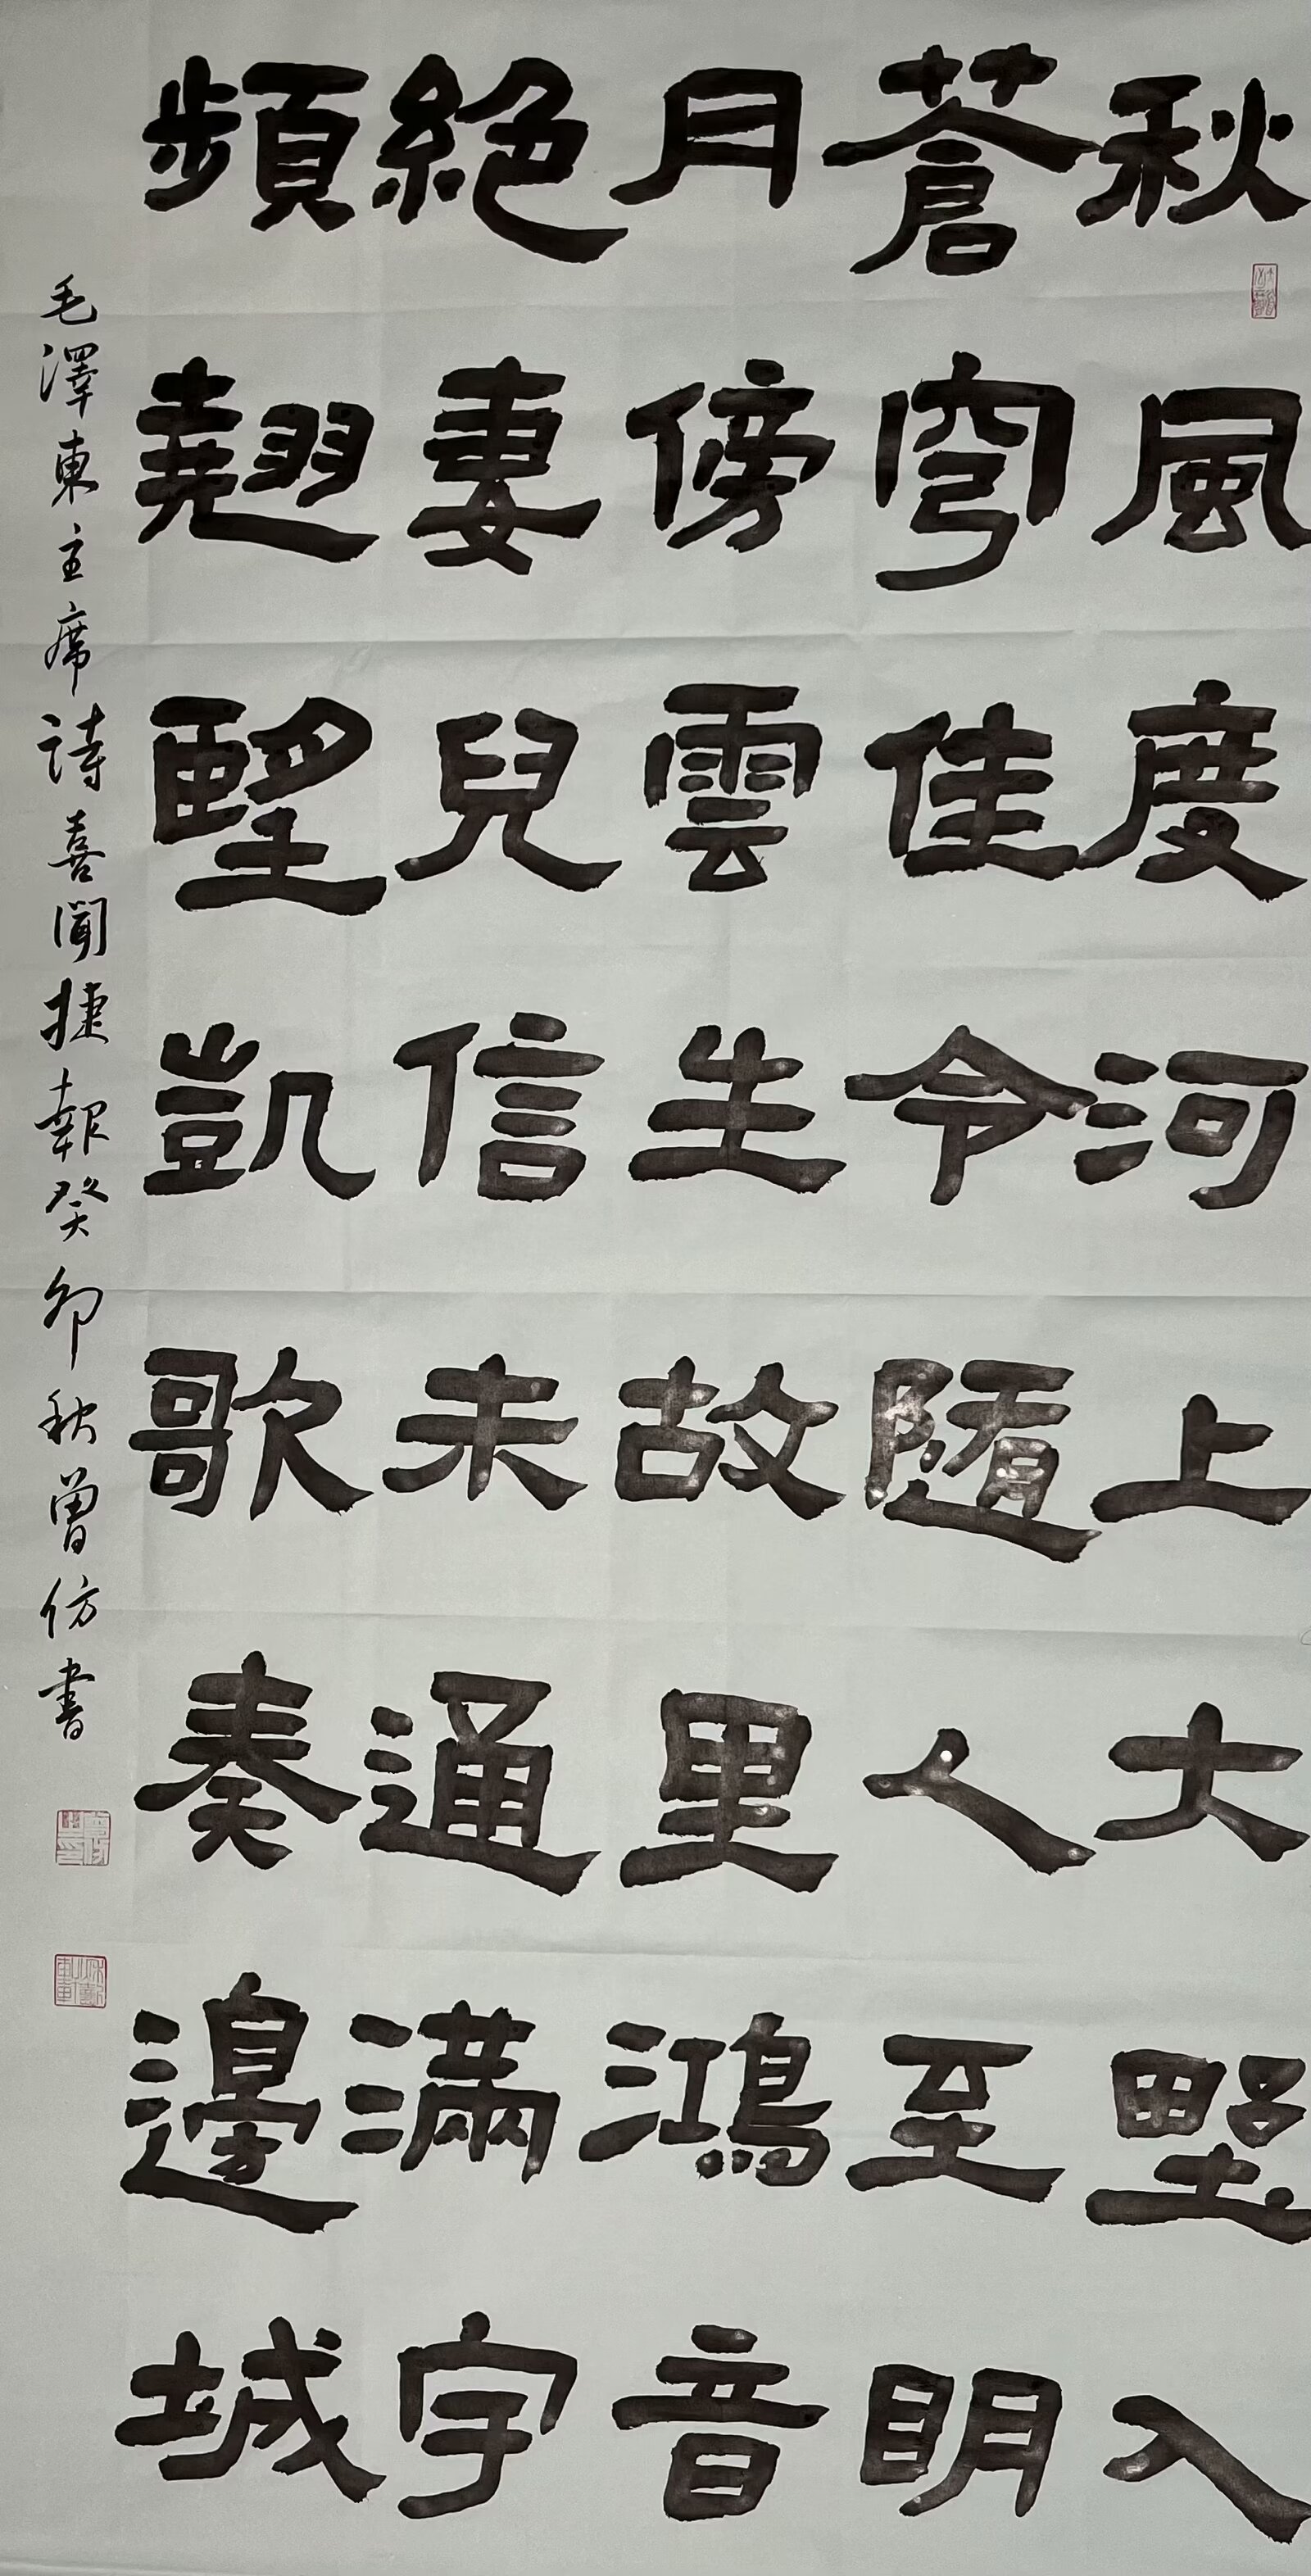 秋風度河上大野入
蒼穹佳令隨人至明
月傍雲生故里鴻音
絕妻兒信未通滿宇
頻翹望凱歌奏邊城
毛澤東主席詩喜聞捷報癸卯秋曾仿書